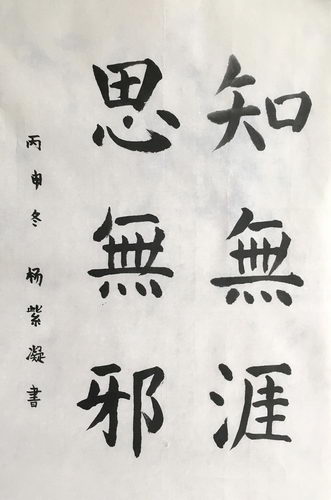 知無涯
思無邪
丙申冬 杨紫凝書